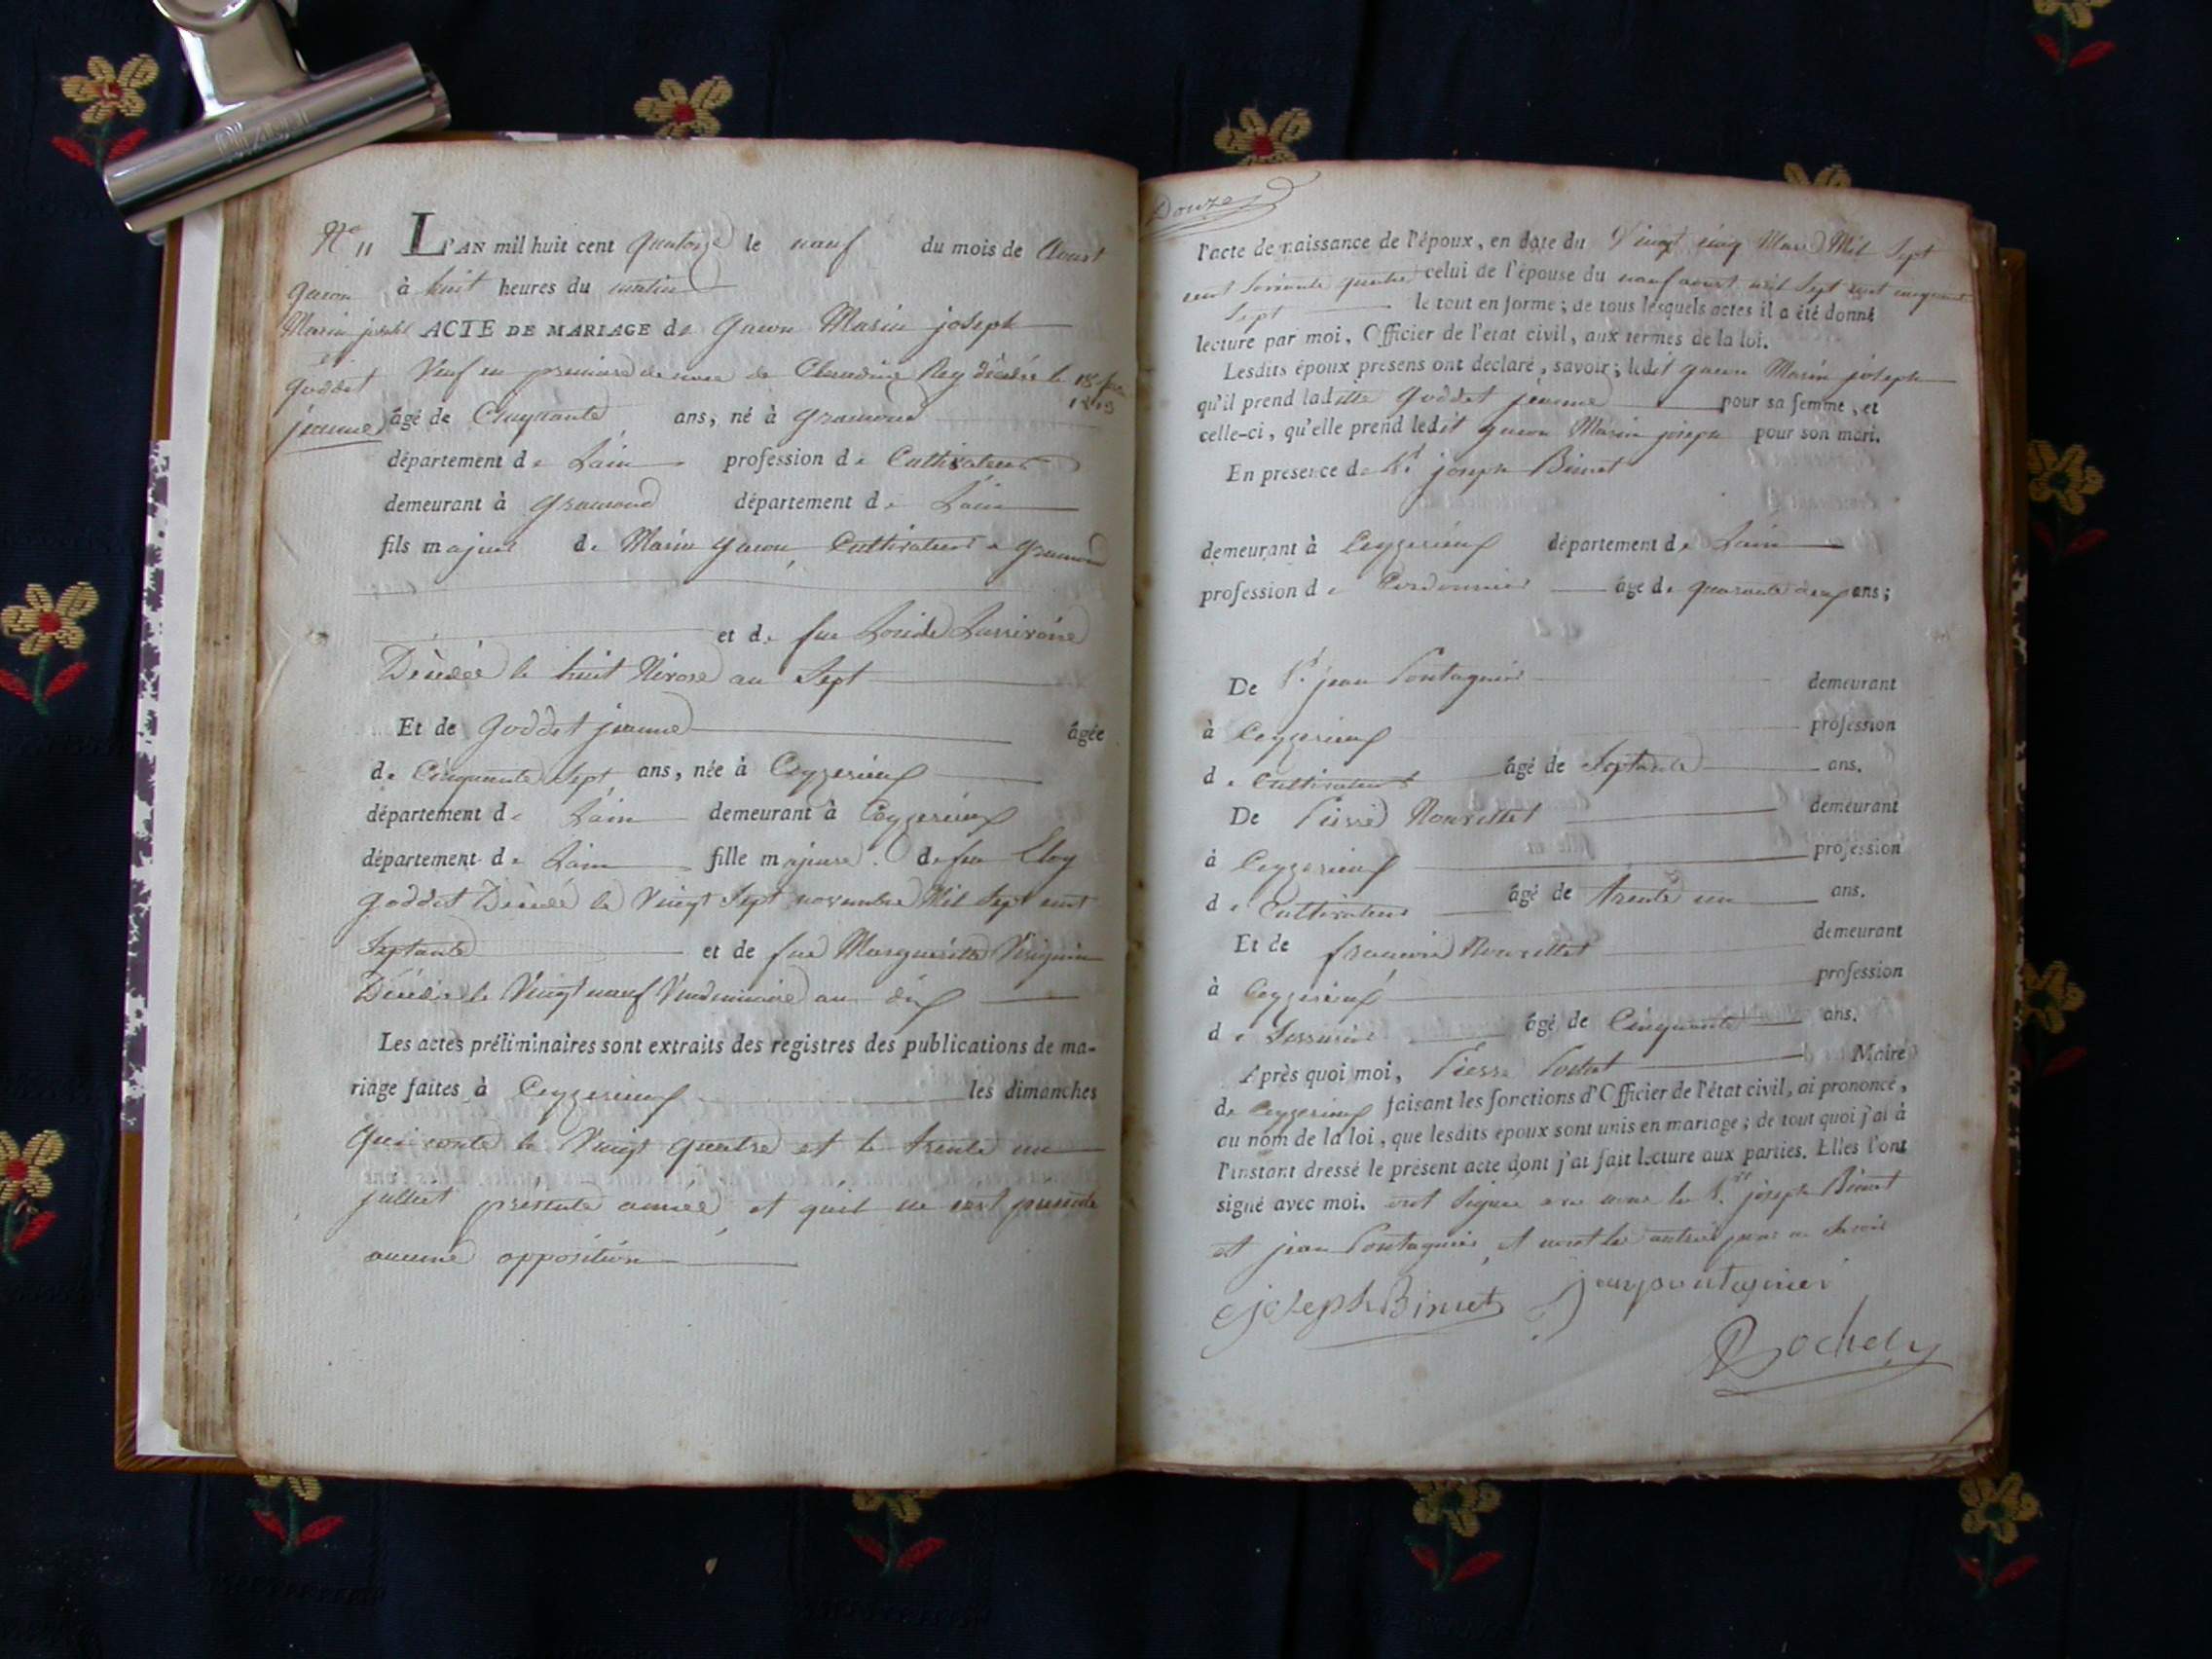 No 11
L'AN mil huit cent quatorze le neuf du mois de Aoust
à huit heures du matin
gacon
Marin joseph
et
goddet
jeanne
ACTE DE MARIAGE de gacon Marin joseph
Veuf en premiere de Claudine Rey décédée le 18
1813
âgé de Cinquante ans, né à gramond
département de Lain profession de Cultivateur
demeurant à gramond département de Lain
fils majeur de Marin gacon, Cultivateur a gramond
et de fue
Décédée le huit Nivose an Sept
Et de goddet jeanne âgée
de Cinquante Sept ans, née à Ceyzerieux
département de Lain demeurant à Ceyzerieux
département de Lain fille majeure de feu Eloy
goddet Décédé le Vingt Sept novembre Mil Sept cent
Septante et de fue Margueritte
Décédée le Vingt neuf Vendemiaire an dix
Les actes préliminaires sont extraits des registres des publications de ma-
riage faites à Ceyzerieux les dimanches
le Vingt quatre et le trente un
juillet présente année, et quil ne
aucune opposition
Douze
l'acte de naissance de l'époux, en date du Vingt cinq Mars Mil Sept
cent Soixante quatre celui de l'épouse du neuf aoust mil Sept cent cinquante
Sept le tout en forme; de tous lesquels actes il a été donné
lecture par moi, Officier de l'état civil, aux termes de la loi.
Lesdits époux présens ont déclaré, savoir; ledit gacon Marin joseph
qu'il prend ladite goddet jeanne pour sa femme, et
celle-ci, qu'elle prend ledit gacon Marin joseph pour son mari.
En présence de Sr joseph Binet
demeurant à Ceyzerieux département de Lain
profession de Cordonnier âgé de quarante deux ans;
De Sr jean Pontagnier demeurant
à Ceyzerieux profession
de Cultivateur âgé de Septante ans.
De Pierre demeurant
à Ceyzerieux profession
de Cultivateur âgé de trente un ans.
Et de françois demeurant
à Ceyzerieux profession
de Serrurier âgé de Cinquante ans.
Après quoi moi, Pierre Maire
de Ceyzerieux faisant les fonctions d'Officier de l'état civil, ai prononcé,
au nom de la loi, que lesdits époux sont unis en mariage; de tout quoi j'ai à
l'instant dressé le présent acte dont j'ai fait lecture aux parties. Elles l'ont
signé avec moi. ont Signé avec nous les Srs joseph Binet
et jean Pontagnier, et non les autres pour ne Savoir
joseph Binet jean pontagnier